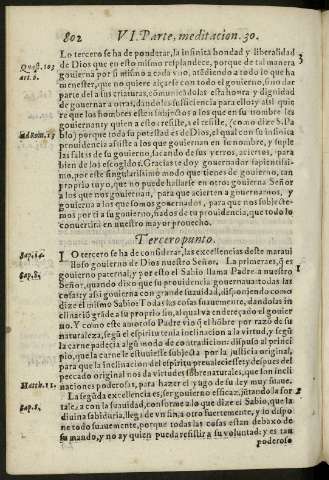 802 VI. Parte, meditacion. 30.
Lo tercero se ha de ponderar, la infinita bondad y liberalidad
de Dios que en esto mismo resplandece, porque de tal manera
gouierna por si mismo a cada vno, atédiendo a todo lo que ha
menester, que no quiere alçarse con todo el gouierno, sino dar
parte del a sus criaturas, comunicádoles esta honra y dignidad
de gouernar a otras, dandoles suficiencia para ello: y assi quie
re que los hombres esten subjectos a los que en su nombre les
gouiernan: y quien a estos resiste, a el resiste,
blo) porque toda su potestad es de Dios, el qual con su infinita
prouidencia assiste a los que gouiernan en su nombre, y suple
las faltas de su gouierno, sacando de sus yerros, aciertos, para
bien de los escogidos. Gracias te doy gouernador sapientissi-
mo, por este singularissimo modo que tienes de gouierno, tan
proprio tuyo, que no puede hallarse en otros; gouierna Señor
a los que nos gouiernan, para que acierten a gouernarnos, y
gouierna a los que somos gouernados, para que nos subjecte-
mos por ti a su gouierno, fiados de tu prouidencia, que todo lo
conuertirà en nuestro mayor prouecho.
Tercero punto.
LO tercero se ha de considerar, las excelencias deste maraui
lloso gouierno de Dios nuestro Señor. La primera es, ser
gouierno paternal, y por esto el Sabio llama Padre a nuestro
Señor, quando dixo que su prouidencia gouernaua todas las
cosas: y assi gouierna con grande suauidad, disponiendo como
dize el mismo Sabio: Todas las cosas suauemente, dandolas in
clinació
Y como este amoroso Padre vio q el hóbre por razó de su
naturaleza, segú el espiritu tenia inclinacion a la virtud, y segú
la carne padecia algú modo de contradicion: dispuso al princi
pio, que la carne le estuuiesse subjecta por la justicia original,
para que la inclinacion del espiritu preualeciesse: y despues del
peccado original nos da virtudes sobrenaturales, que son incli
naciones poderosas, para hazer el yugo de su ley muy suaue.
La segúda excellencia es, ser gouierno eficaz, jútando la for
taleza con la suauidad, conforme a lo que dize el Sabio, que la
diuina sabiduria, llega de vn fin a otro fuertemente, y lo dispo
ne todo suauemente, porque todas las cosas estan debaxo de
su mando, y no ay quien pueda resistir a su voluntad: y es tan
poderoso